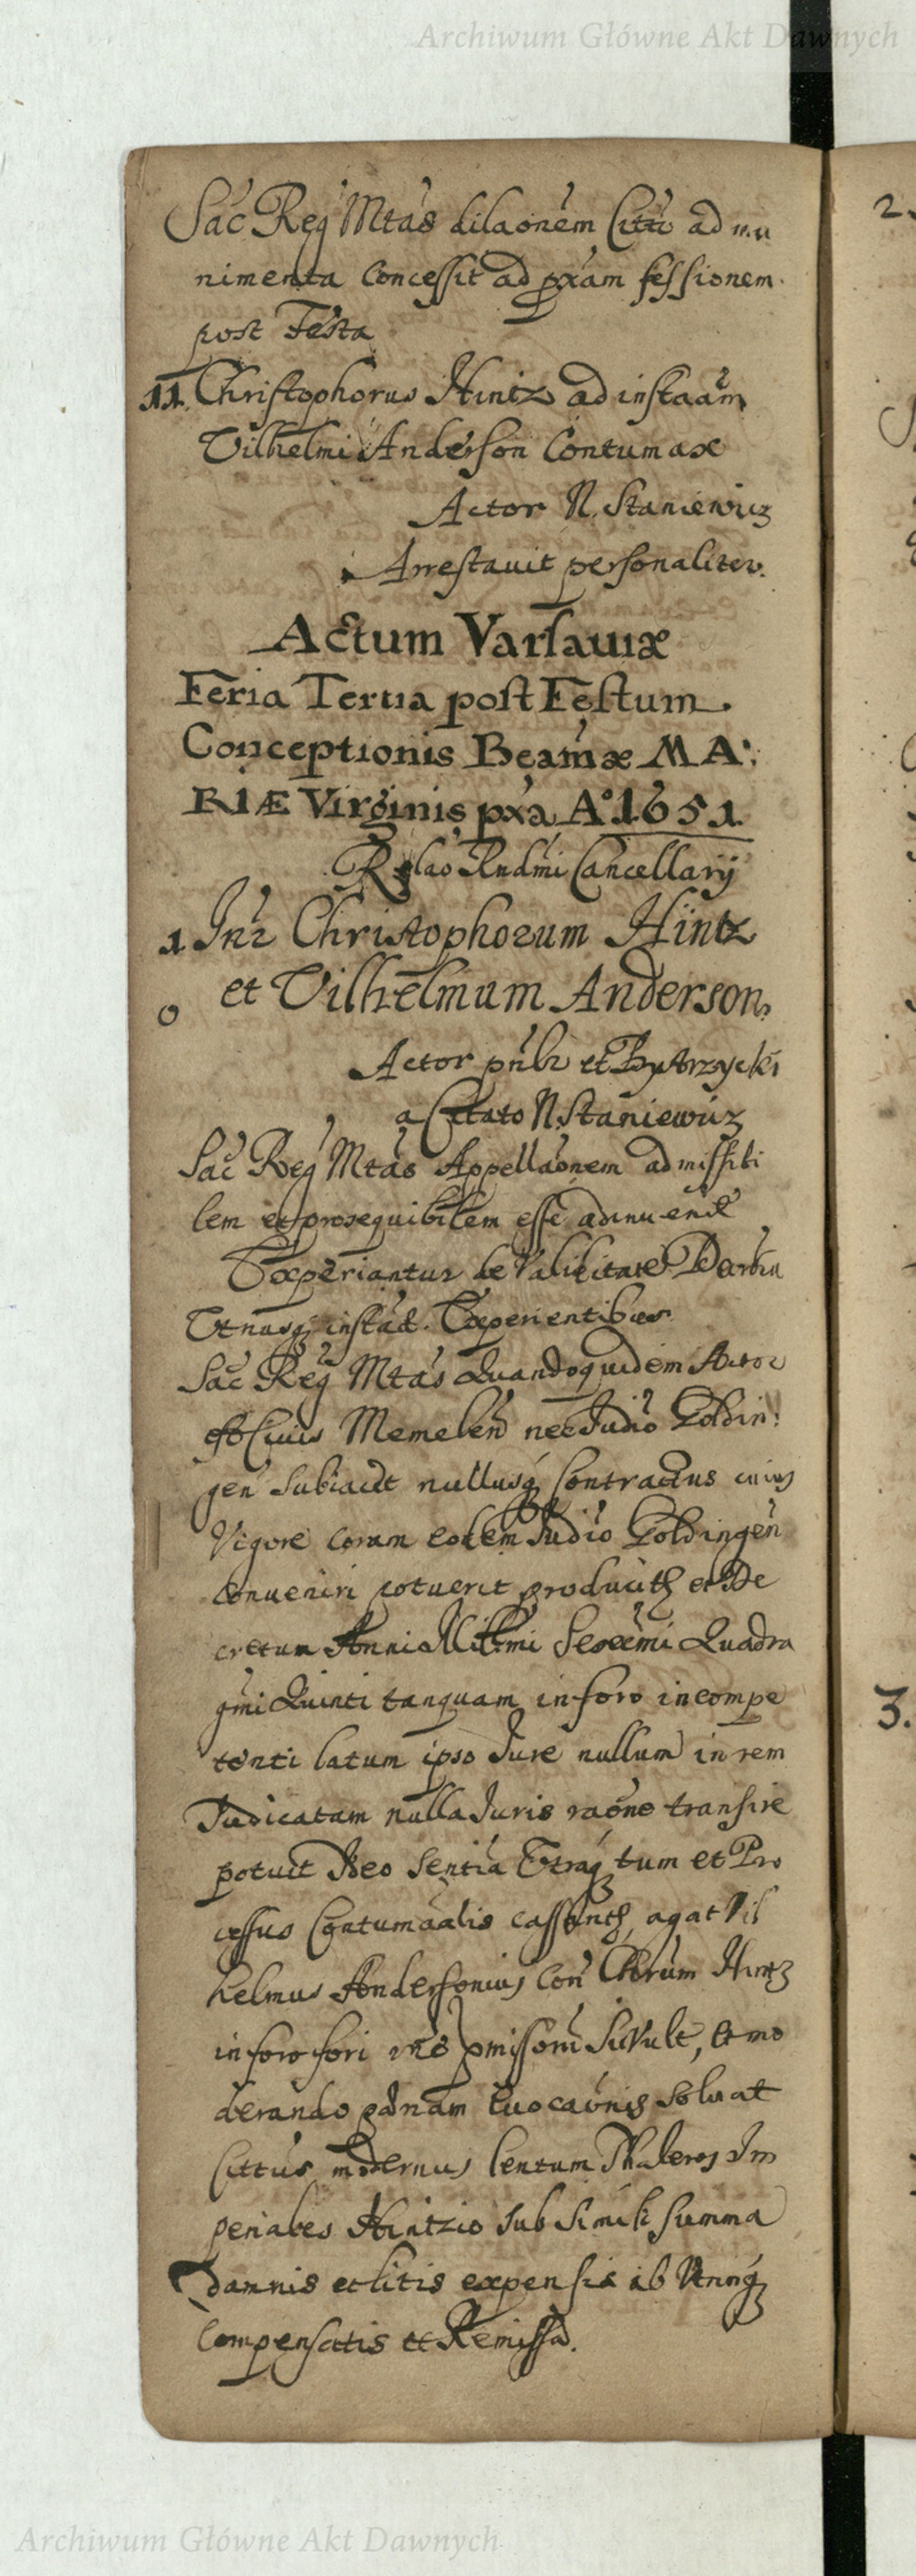 Archiwum Główne Akt Dawnych
Sac Reg Mtas dilaonem Citti ad mu
nimenta Concessit ad pxam sessionem
post Festa
11. Christophorus Hintz ad instaam
Vilhelmi Anderson Contumax
Actor N. Staniewicz
Arrestauit personaliter.
Actum Varsauiæ
Feria Tertia post Festum
Conceptionis Beatmæ MA:
RIÆ Virginis pxa Aº 1651
Relao Rndmi Cancellarij
1 Inr Christophorum Hintz
o et Vilhelmum Anderson,
Actor pnbr et Bystrzycki
a Citato N. Staniewicz
Sac Reg Mtas Appellaonem admissibi
lem et prosequibilem esse adinuenit
Experiantur de Validitate
Utriusq instad. Experientibus
Sac Reg Mtas Quandoquidem Actor
est Ciuis Memelen nec Judio Goldin:
gen subiacet nullusq Contractus cuius
Vigore coram eodem Judio Goldingen
conueniri potuerit producitr et De
cretum Anni Millmi Sexcmi Quadra
gmi Quinti tanquam in foro incompe
tenti latum ipso Jure nullum in rem
Judicatam nulla Juris raone transire
potuit Ideo sentia tum et Pro
cessus Contumacialis cassantr, agat Vil
helmus Andersonius con Chrum Hintz
in foro fori rne pmissorum si vult, et mo
derando pænam euocaonis soluat
Cittus modernus Centum Thaleros Im
periales Hintzio sub simili summa
damnis et litis expensis ab Utrinq
compensatis et Remissa.
Archiwum Główne Akt Dawnych
2.
3.